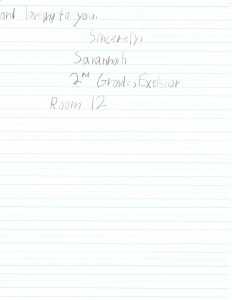 and loveing to you.
Sincerely,
Savannah
2nd Grade, Excelsior
Room 12